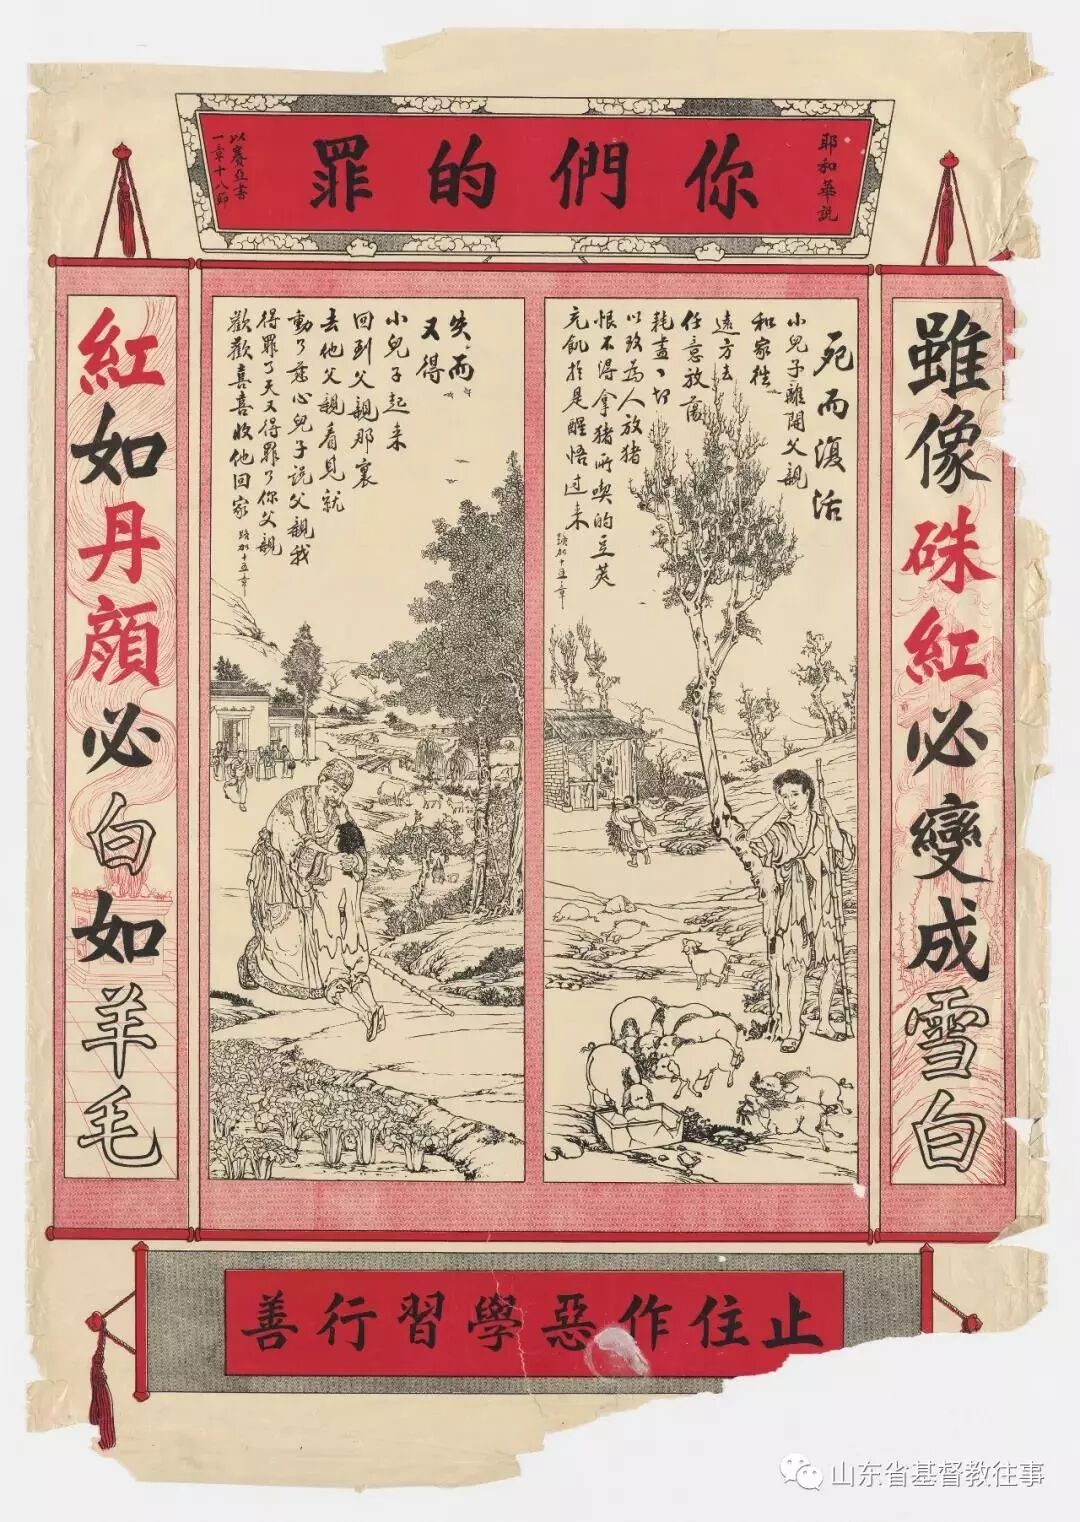 耶和華説
你們的罪
以賽亞書
一章十八節
雖像硃紅必變成雪白
死而復活
小兒子離開父親
和家往
遠方去
任意放蕩
耗盡一切
以致為人放猪
恨不得拿猪所喫的豆莢
充飢於是醒悟过来
路加十五章
失而
又得
小兒子起来
回到父親那裏
去他父親看見就
動了慈心兒子说父親我
得罪了天又得罪了你父親
歡歡喜喜收他回家
路加十五章
紅如丹顔必白如羊毛
止住作惡學習行善
山东省基督教往事